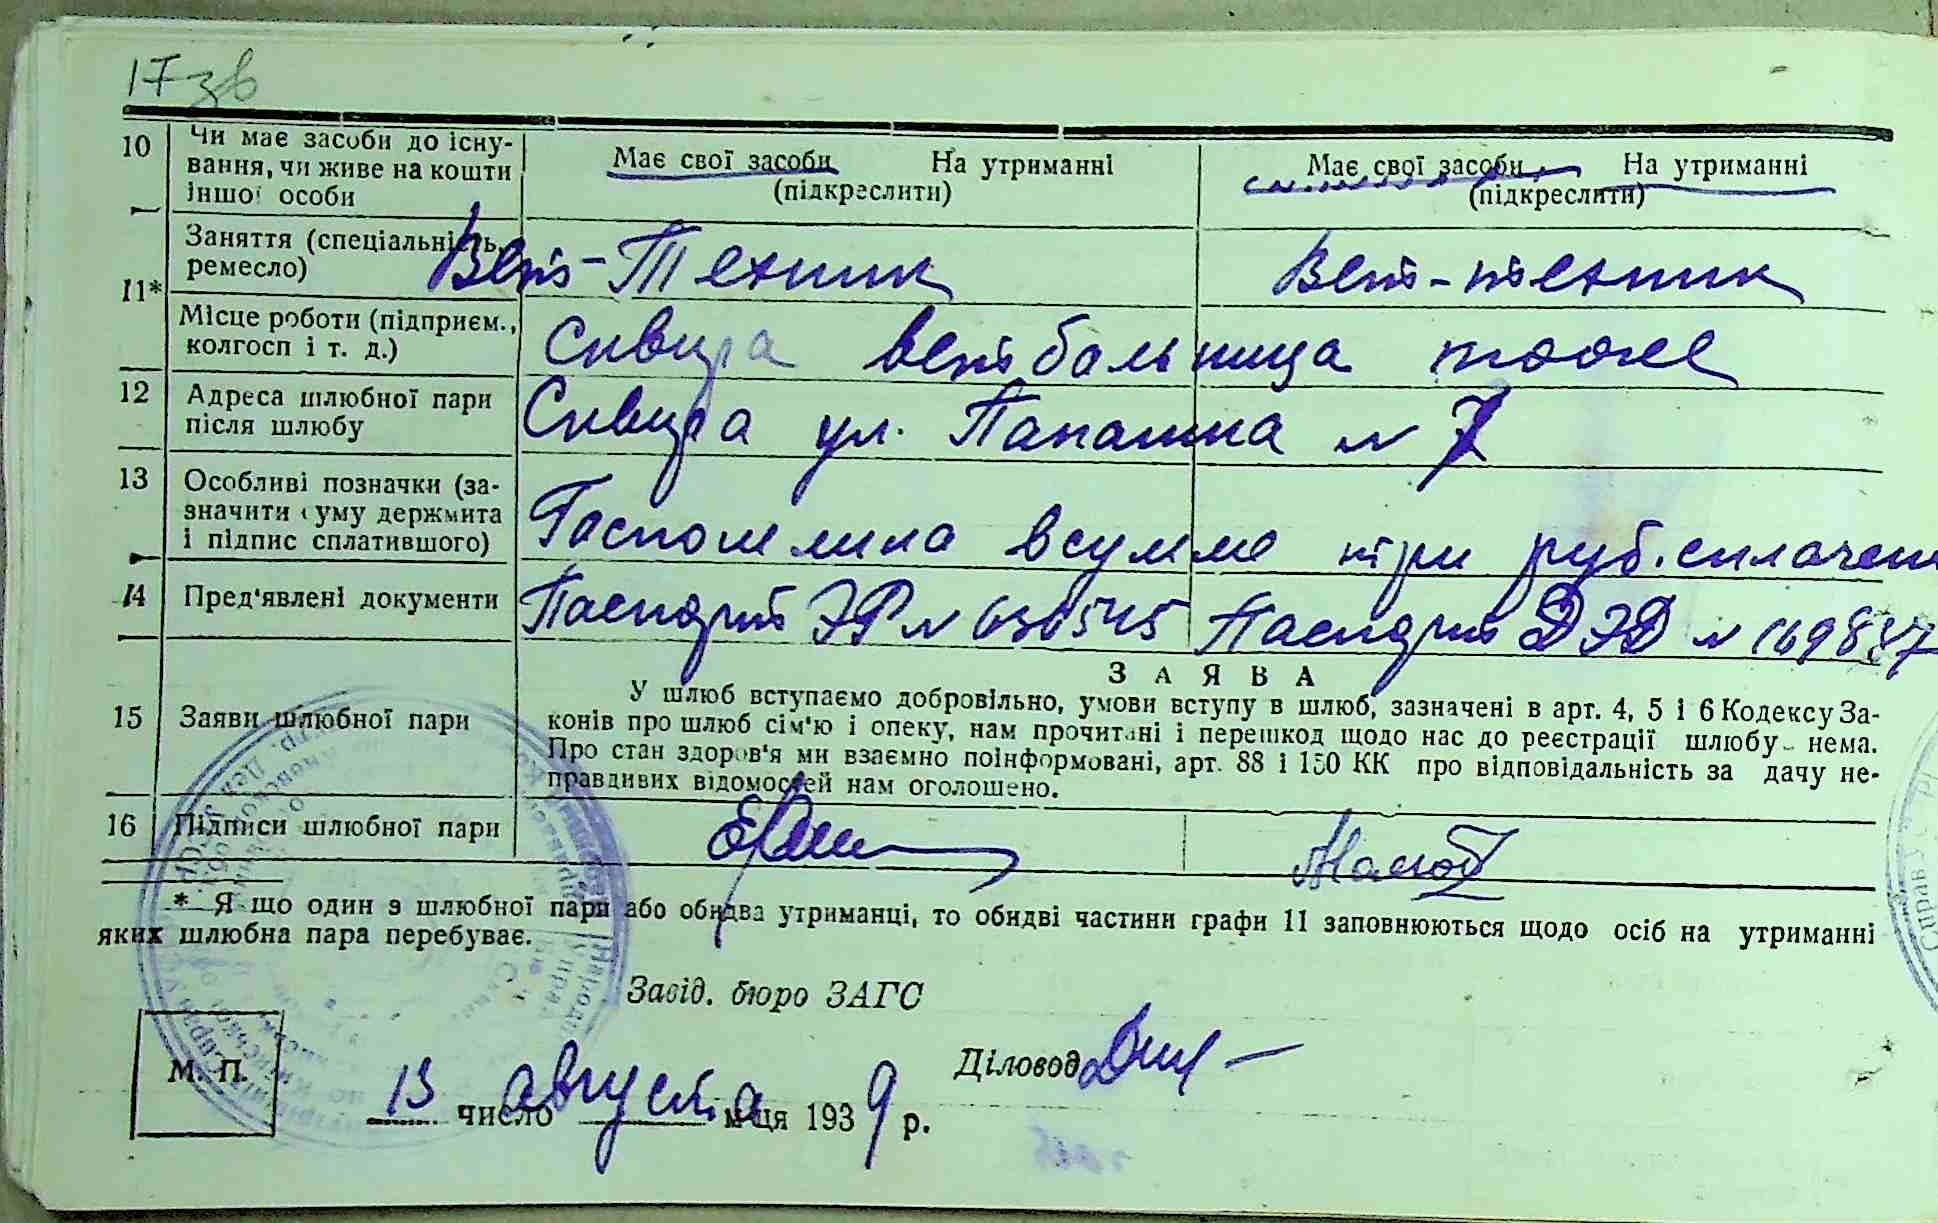 17 зв
10 Чи має засоби до існу-
вання, чи живе на кошти
іншої особи
Має свої засоби На утриманні
(підкреслити)
Має свої засоби На утриманні
(підкреслити)
11*
Заняття (спеціальність,
ремесло)
Вет-Техник Вет-техник
Місце роботи (підприєм.,
колгосп і т. д.)
Сквира ветбальница тоже
12 Адреса шлюбної пари
після шлюбу
Сквира ул. № 7
13 Особливі позначки (за-
значити суму держмита
і підпис сплатившого)
Госпошлина в сумме три руб. сплачен
14 Пред'явлені документи
Паспорт ЭР № 636545 Паспорт ДЭД №
З А Я В А
15 Заяви шлюбної пари
У шлюб вступаємо добровільно, умови вступу в шлюб, зазначені в арт. 4, 5 і 6 Кодексу За-
конів про шлюб сім'ю і опеку, нам прочитані і перешкод щодо нас до реєстрації шлюбу нема.
Про стан здоров'я ми взаємно поінформовані, арт. 88 і 150 КК про відповідальність за дачу не-
правдивих відомостей нам оголошено.
16 Підписи шлюбної пари
* Я що один з шлюбної пари або обидва утриманці, то обидві частини графи 11 заповнюються щодо осіб на утриманні
яких шлюбна пара перебуває.
Завід. бюро ЗАГС
Діловод
М. П.
13 число августа м-ця 1939 р.